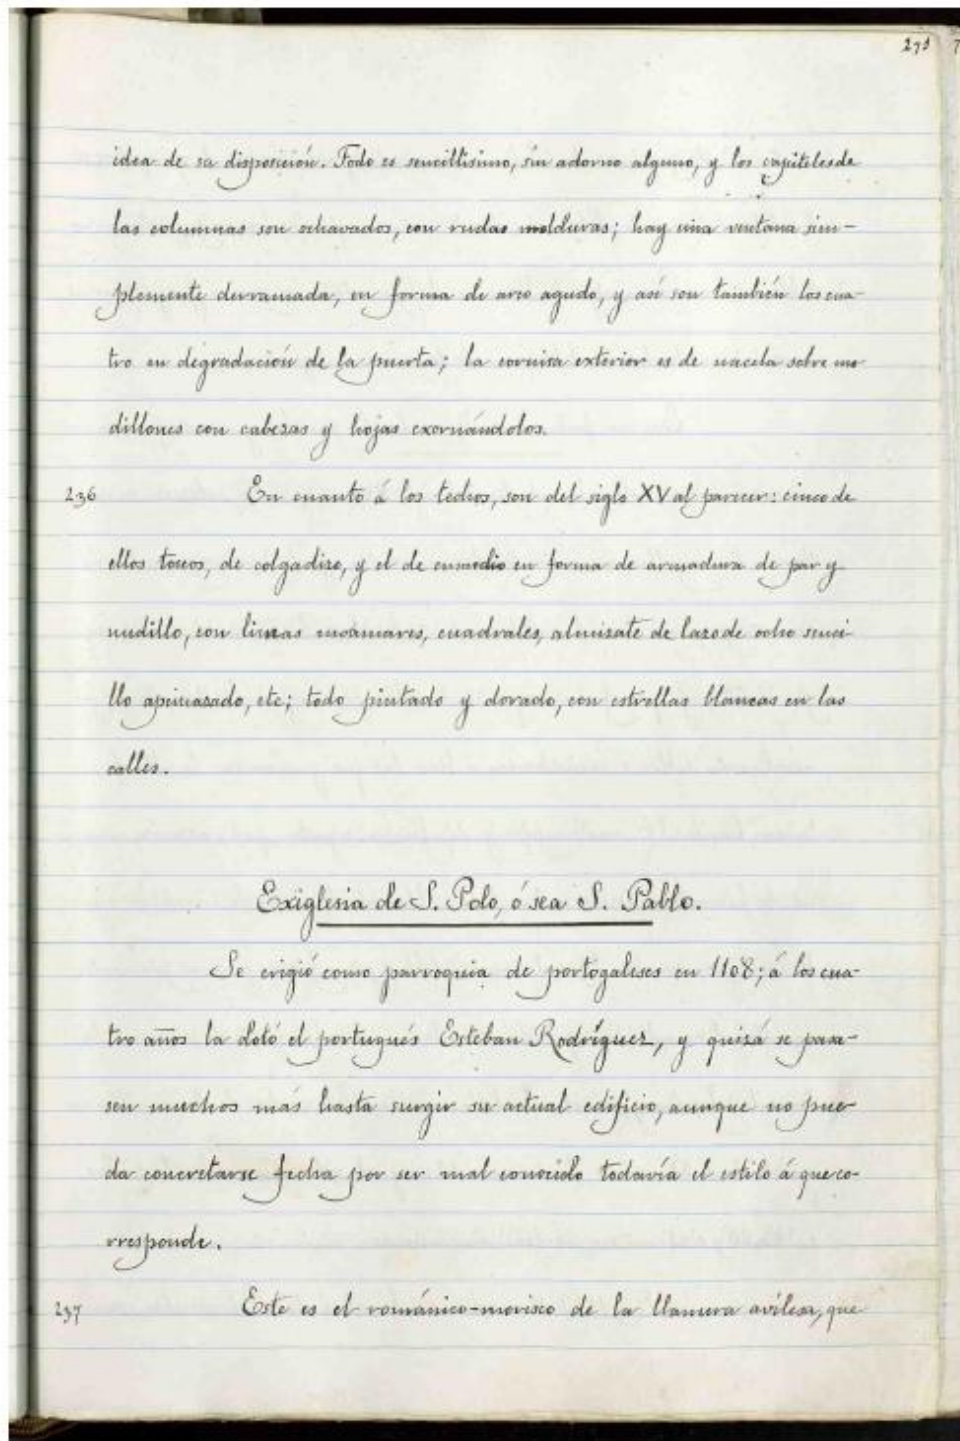 273
idea de su disposición. Todo es sencillísimo, sin adorno alguno, y los capiteles de
las columnas son ochavados, con rudas molduras; hay una ventana sim-
plemente derramada, en forma de arco agudo, y así son también los cua-
tro en degradación de la puerta; la cornisa exterior es de nacela sobre mo
dillones con cabezas y hojas exornándolos.
236 En cuanto á los techos, son del siglo XV al parecer: cinco de
ellos toscos, de colgadizo, y el de enmedio en forma de armadura de par y
nudillo, con limas moamares, cuadrales, almizate de lazo de ocho senci-
llo apinazado, etc; todo pintado y dorado, con estrellas blancas en las
calles.
Exiglesia de S. Polo, ó sea S. Pablo.
Se erigió como parroquia de portogaleses en 1108; á los cua-
tro años la dotó el portugués Esteban Rodríguez, y quizá se pasa-
sen muchos más hasta surgir su actual edificio, aunque no pue-
da concretarse fecha por ser mal conocido todavía el estilo á que co-
rresponde.
237 Este es el románico-morisco de la llanura avilesa, que